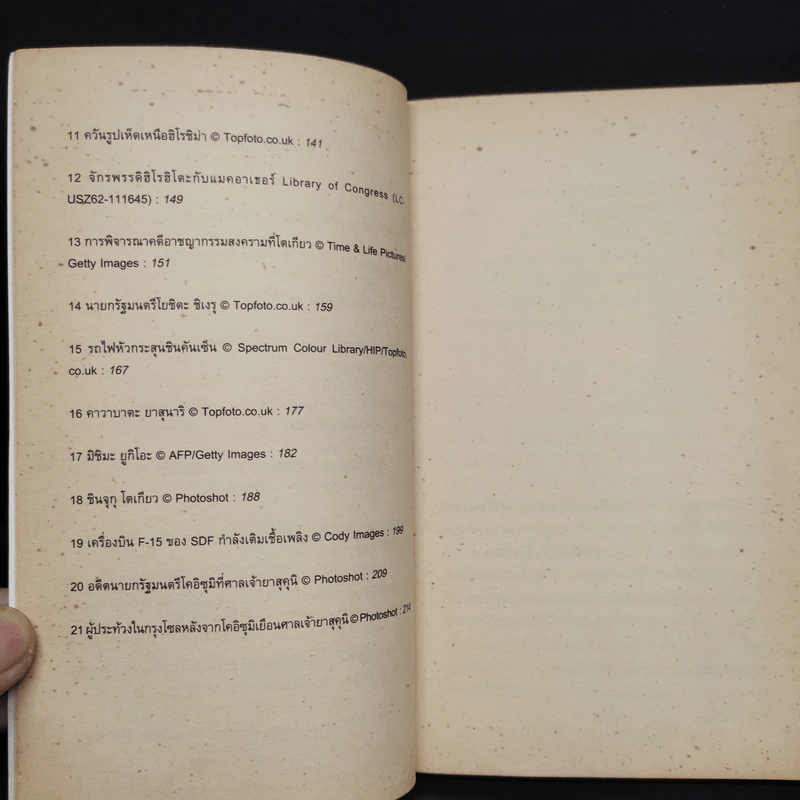 11 ควันรูปเห็ดเหนือฮิโรชิม่า © Topfoto.co.uk : 141
12 จักรพรรดิฮิโรฮิโตะกับแมคอาเธอร์ Library of Congress (LC-
USZ62-111645) : 149
13 การพิจารณาคดีอาชญากรรมสงครามที่โตเกียว © Time & Life Pictures/
Getty Images : 151
14 นายกรัฐมนตรีโยชิดะ ชิเงรุ © Topfoto.co.uk : 159
15 รถไฟหัวกระสุนชินคันเซ็น © Spectrum Colour Library/HIP/Topfoto.
co.uk : 167
16 คาวาบาตะ ยาสุนาริ © Topfoto.co.uk : 177
17 มิชิมะ ยูกิโอะ © AFP/Getty Images : 182
18 ชินจุกุ โตเกียว © Photoshot : 188
19 เครื่องบิน F-15 ของ SDF กำลังเติมเชื้อเพลิง © Cody Images : 199
20 อดีตนายกรัฐมนตรีโคอิซุมิที่ศาลเจ้ายาสุคุนิ © Photoshot : 209
21 ผู้ประท้วงในกรุงโซลหลังจากโคอิซุมิเยือนศาลเจ้ายาสุคุนิ © Photoshot : 214